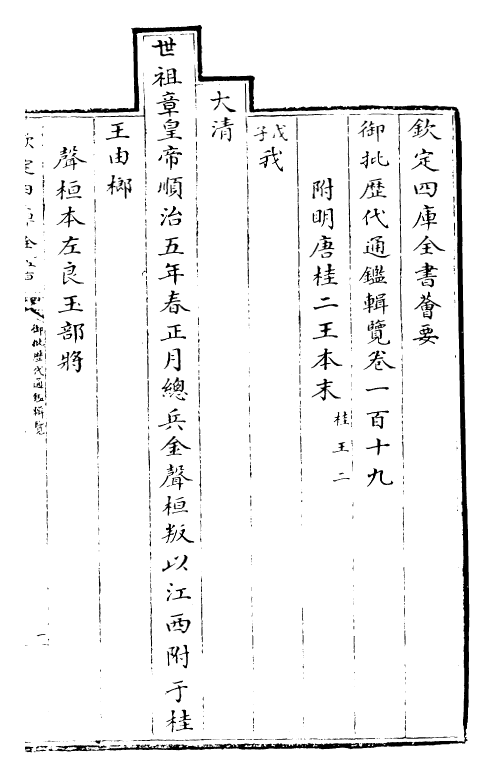 欽定四庫全書薈要
御批歷代通鑑輯覽卷一百十九
附明唐桂二王本末 桂王二
戊子 我
大清
世祖章皇帝順治五年春正月總兵金聲桓叛以江西附于桂
王由榔
聲桓本左良玉部將
欽定四庫全書
御批歷代通鑑輯覽
一